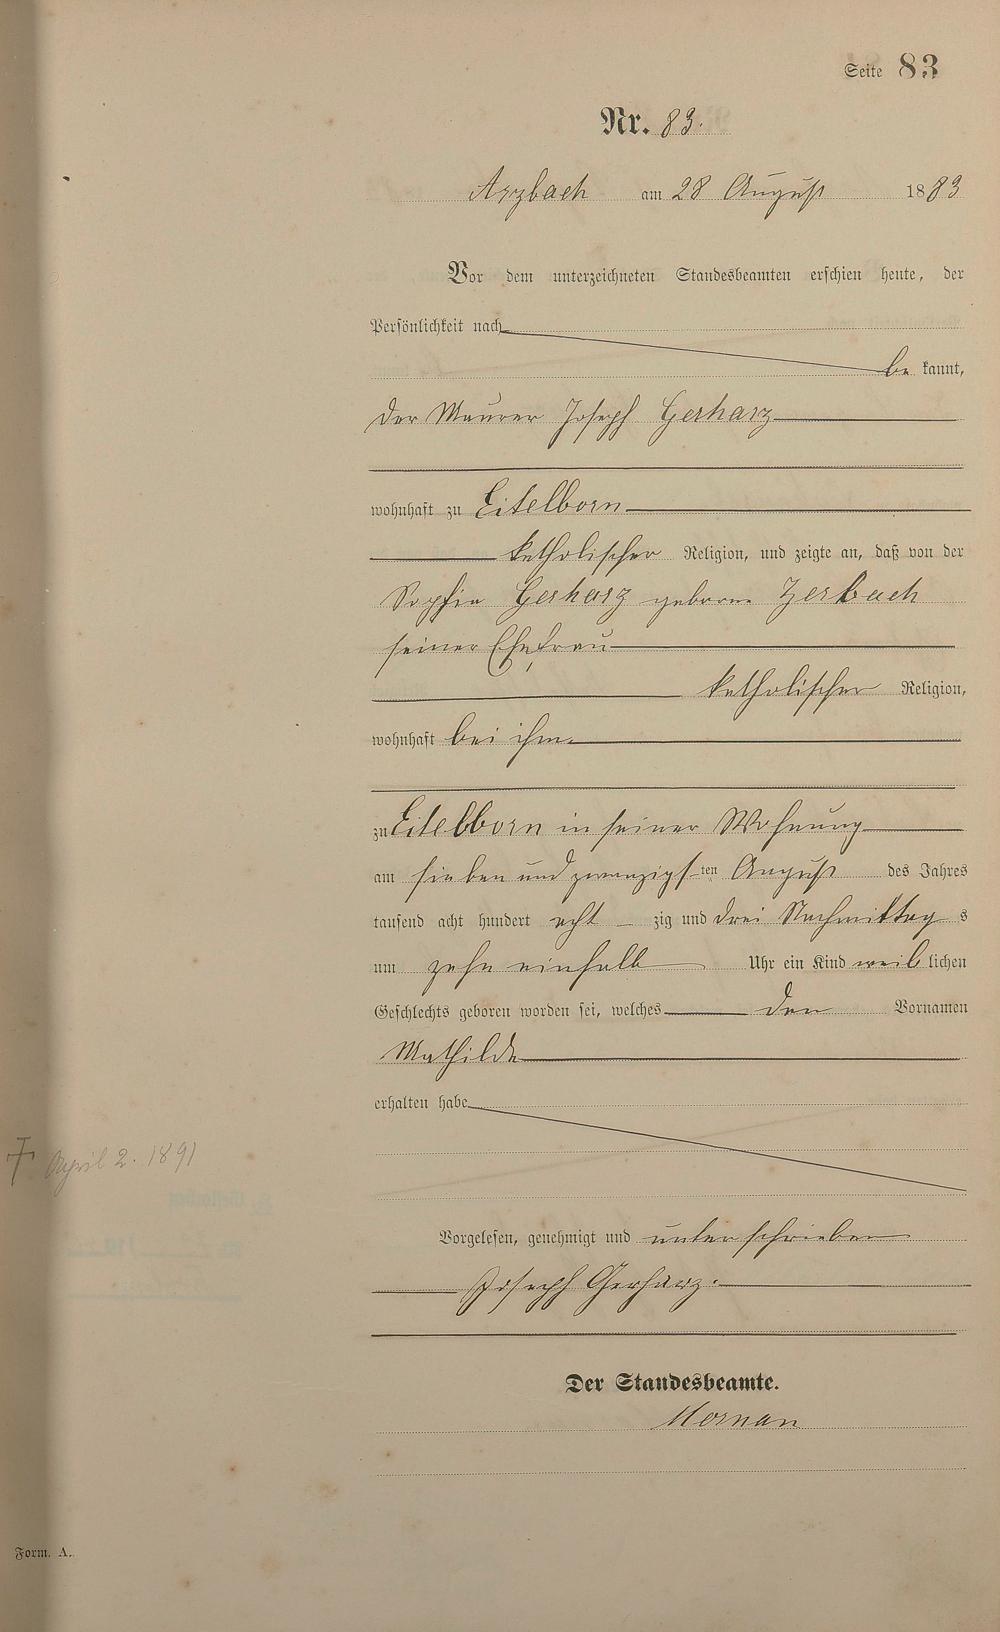 Seite 83
Nr. 83.
Arzbach am 28 August 1883
Vor dem unterzeichneten Standesbeamten erschien heute, der
Persönlichkeit nach
be kannt,
der Maurer Joseph Gerharz
wohnhaft zu Eitelborn
katholischer Religion, und zeigte an, daß von der
Sophia Gerharz geborne Zerbach
seiner Ehefrau
katholischer Religion,
wohnhaft bei ihm
zu Eitelborn in seiner Wohnung
am sieben und zwanzigsten August des Jahres
tausend acht hundert acht zig und drei Nachmittag s
um zehn einhalb Uhr ein Kind weib lichen
Geschlechts geboren worden sei, welches den Vornamen
Mathilde
erhalten habe
† April 2. 1891
Vorgelesen, genehmigt und unterschrieben
Joseph Gerharz.
Der Standesbeamte.
Form. A.